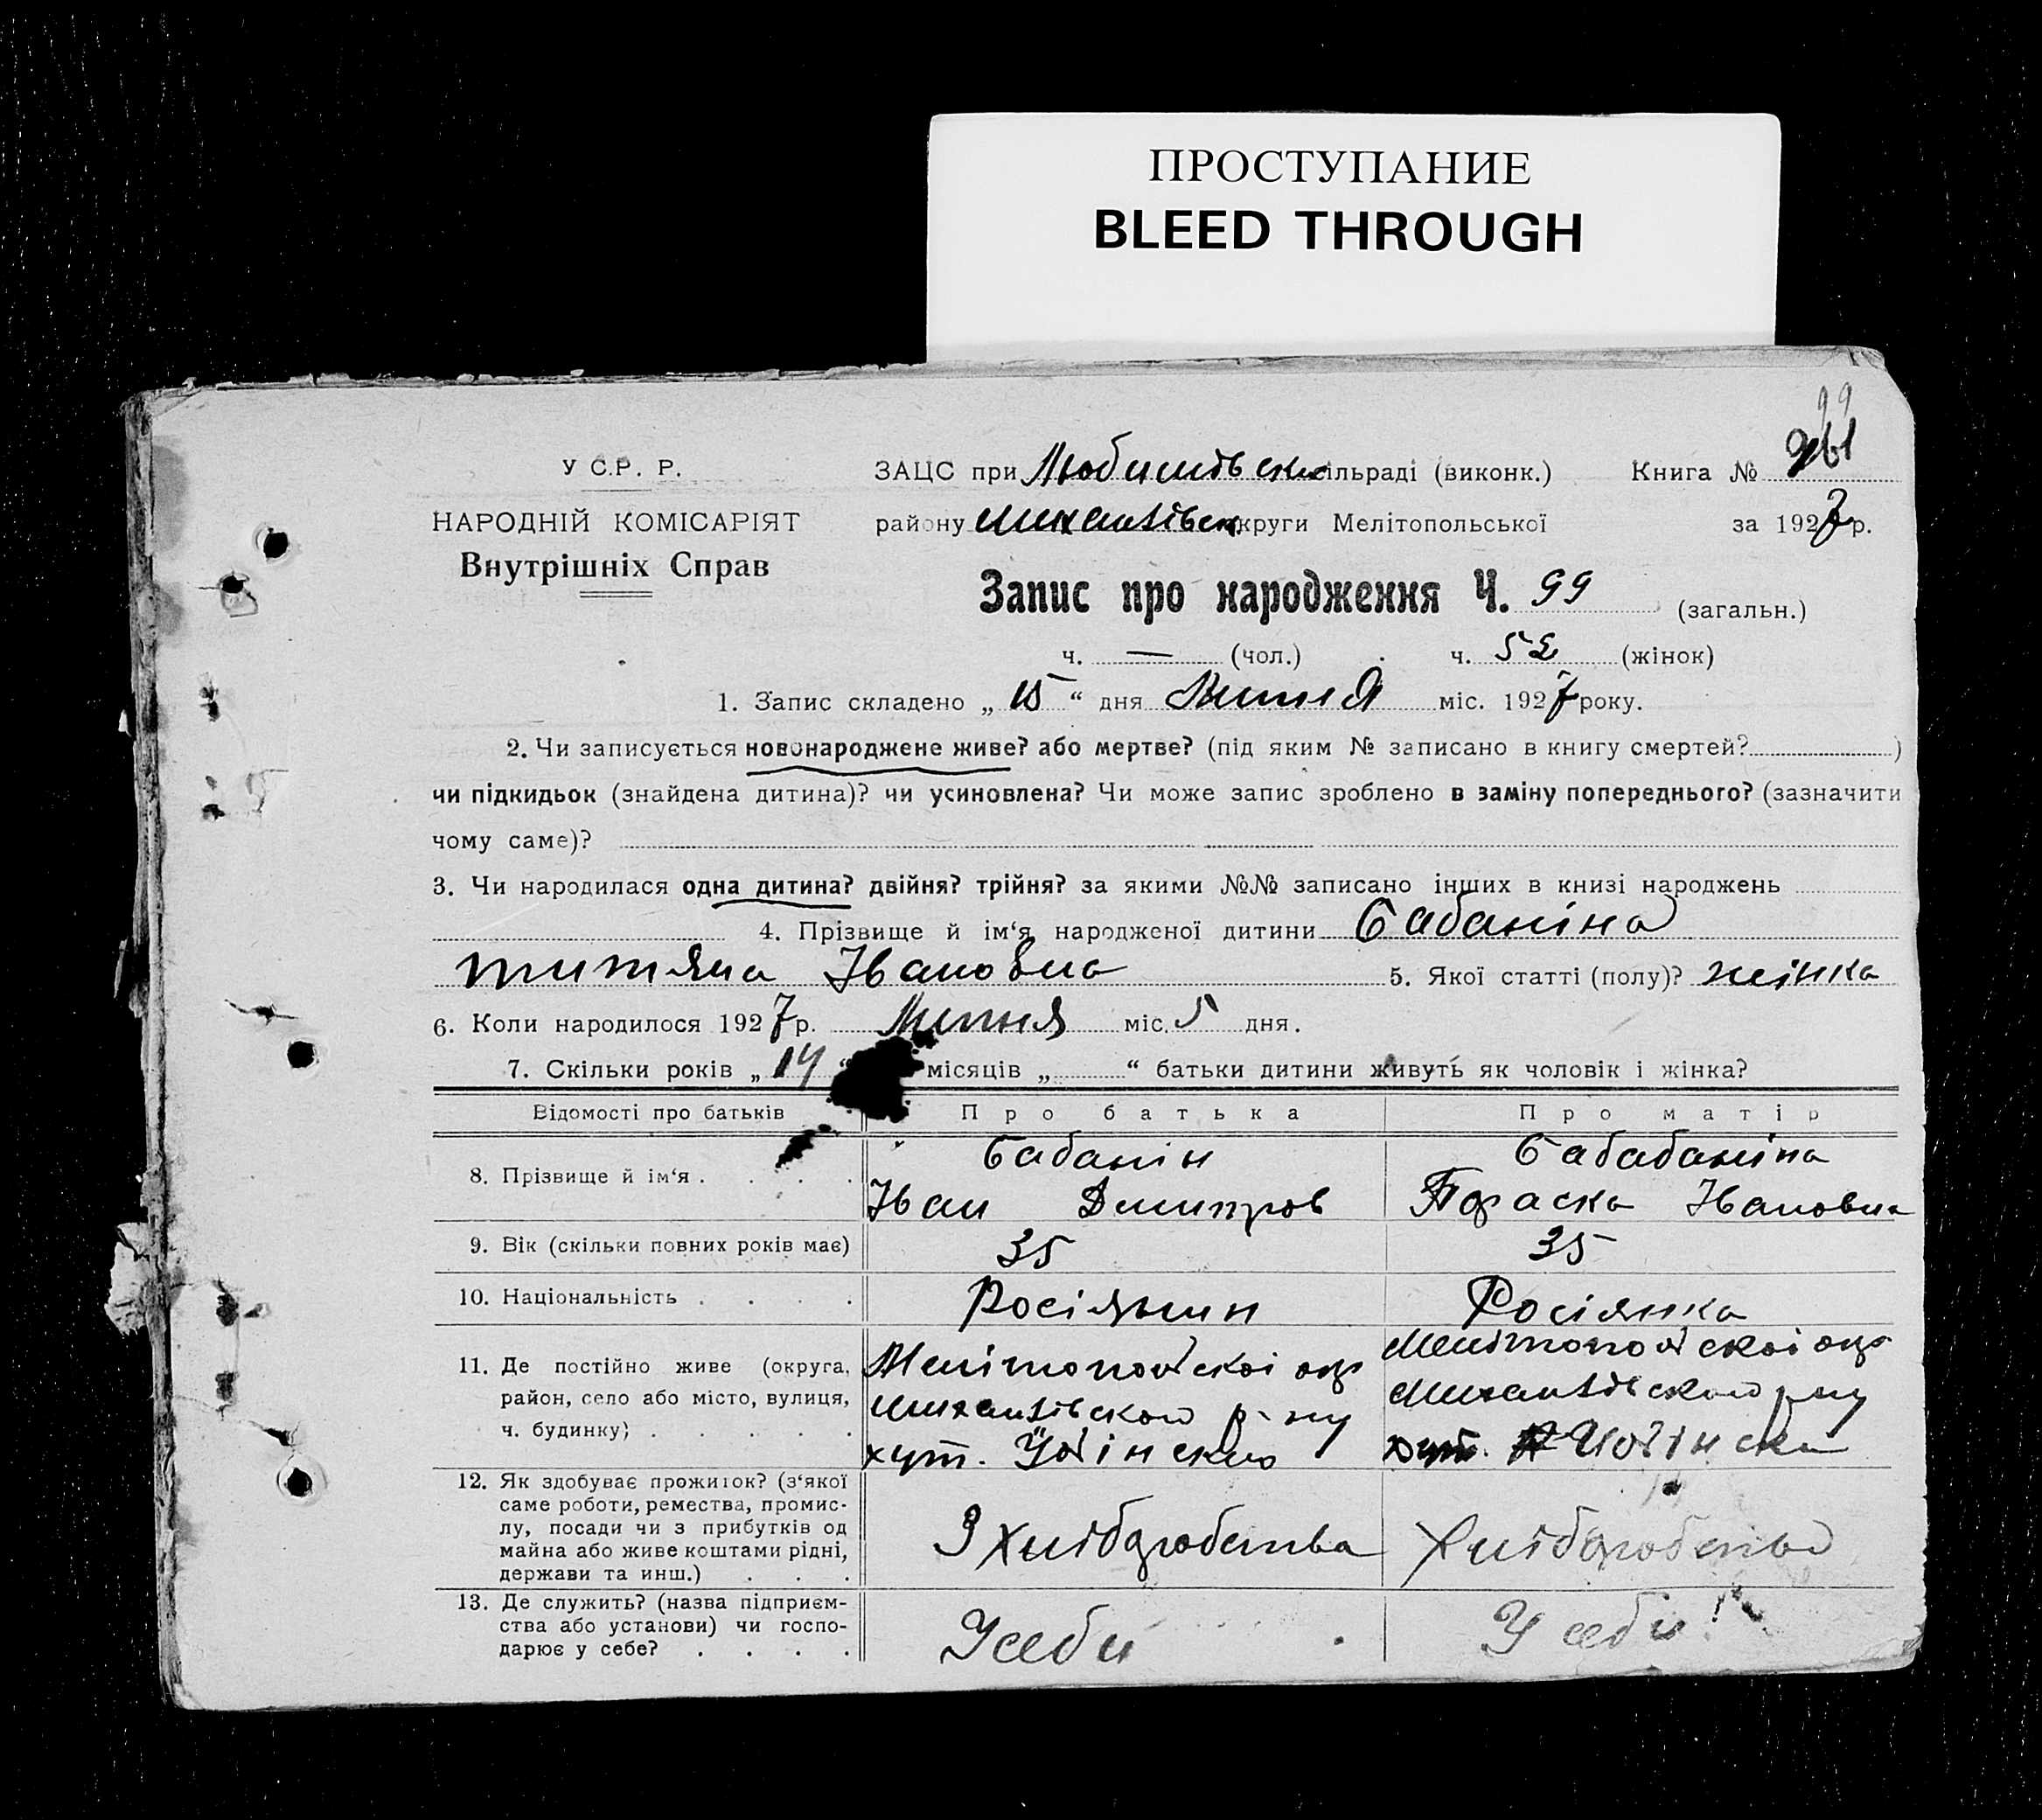 ПРОСТУПАНИЕ
BLEED THROUGH
99
У С.Р. Р.
ЗАЦС при Любимівск сільраді (виконк.) Книга №
НАРОДНІЙ КОМІСАРІЯТ
району Михайлівськ округи Мелітопольської за 1927 р.
Внутрішніх Справ
Запис про народження Ч. 99 (загальн.)
ч. — (чол.) ч. 52 (жінок)
1. Запис складено „ 15 “ дня Липня міс. 1927 року.
2. Чи записується новонароджене живе? або мертве? (під яким № записано в книгу смертей? )
чи підкидьок (знайдена дитина)? чи усиновлена? Чи може запис зроблено в заміну попереднього? (зазначити
чому саме)?
3. Чи народилася одна дитина? двійня? трійня? за якими №№ записано інших в книзі народжень
4. Прізвище й ім‘я народженої дитини Бабаніна
Титяна Івановна 5. Якої статті (полу)? жінка
6. Коли народилося 1927 р. Липня міс. 5 дня.
7. Скільки років „ 14 “ місяців „ “ батьки дитини живуть як чоловік і жінка?
Відомості про батьків Про батька Про матір
8. Прізвище й ім‘я . . . . Бабанін Бабабаніна
Іван Дмитров Параска Івановна
9. Вік (скільки повних років має) 35 35
10. Національність . . . . Росіянин Росіянка
11. Де постійно живе (округа, Мелітопольскоі окр Мелітопольскоі окр
район, село або місто, вулиця, Михайлівского р-ну Михайлівского р-ну
ч. будинку) . . . . . хут. хут.
12. Як здобуває прожиток? (з‘якої
саме роботи, ремества, промис-
лу, посади чи з прибутків од З хліборобства Хліборобства
майна або живе коштами рідні,
держави та инш.) . . .
13. Де служить? (назва підприєм-
ства або установи) чи госпо- У себи У себи
дарює у себе? . . . .